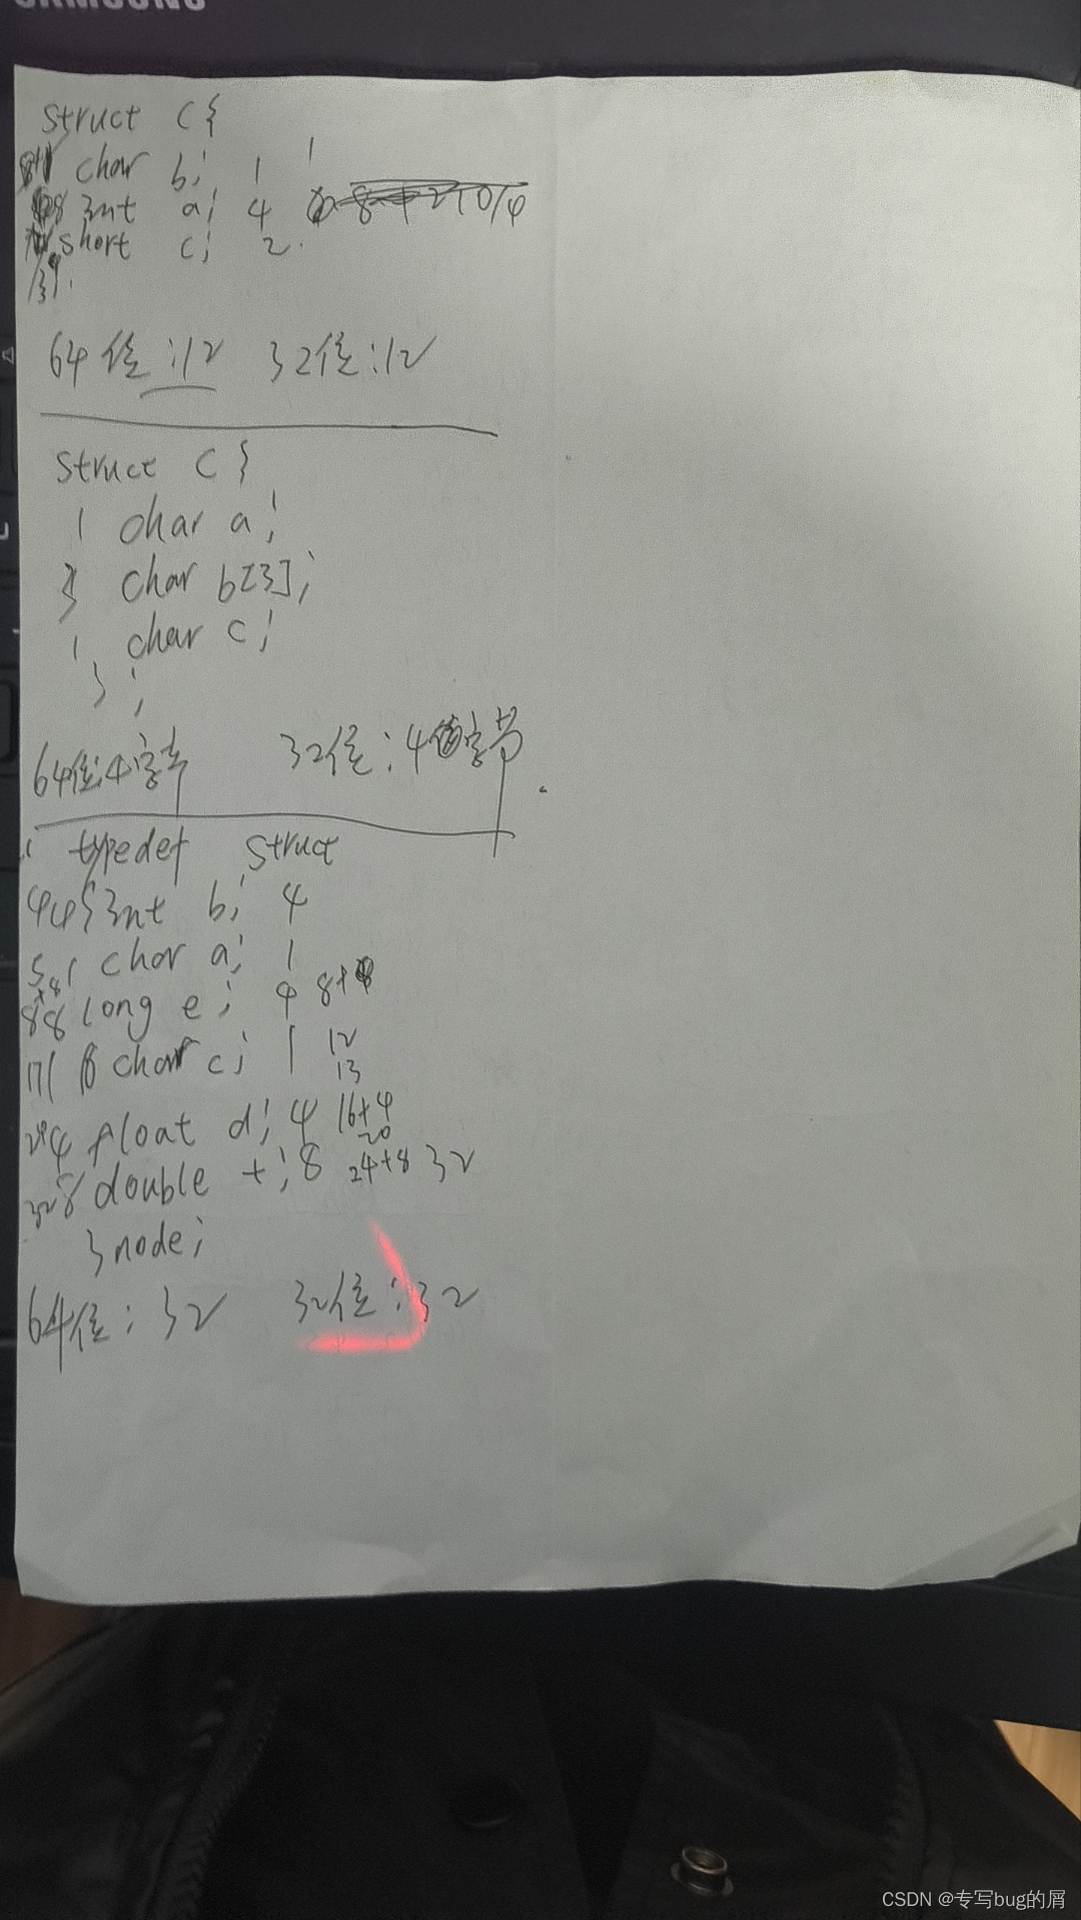 SAMSUNG
struct C{
char b; 1 1
int a; 4
short c; 2.
64位:12 32位:12
struct C{
1 char a;
3 char b[3];
1 char c;
};
64位:4字节 32位:4字节
typedef struct
44{int b; 4
5 1 char a; 1
+8
88 long e; 4 8+
17 1 char c; 1 12
13
4 float d; 4 16+4
20
32 8 double t; 8 24+8 32
}node;
64位: 32 32位: 32
CSDN @专写bug的屑